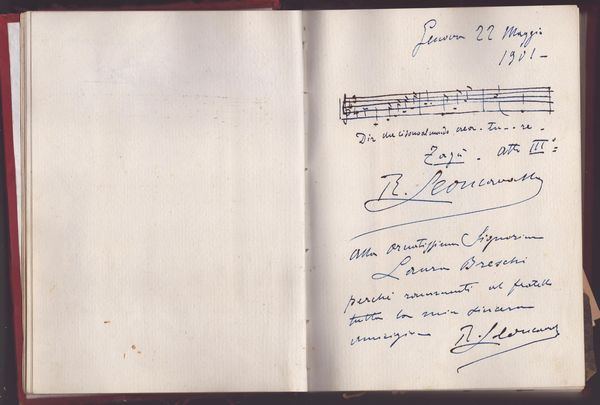 Genova 22 Maggio
1901 -
Dir che ci sono al mondo crea - tu - - re -
Zazà - atto III°
R. Leoncavallo
Alla ornatissima Signorina
Laura Breschi
perchè rammenti al fratello
tutta la mia sincera
amicizia R. Leoncavallo